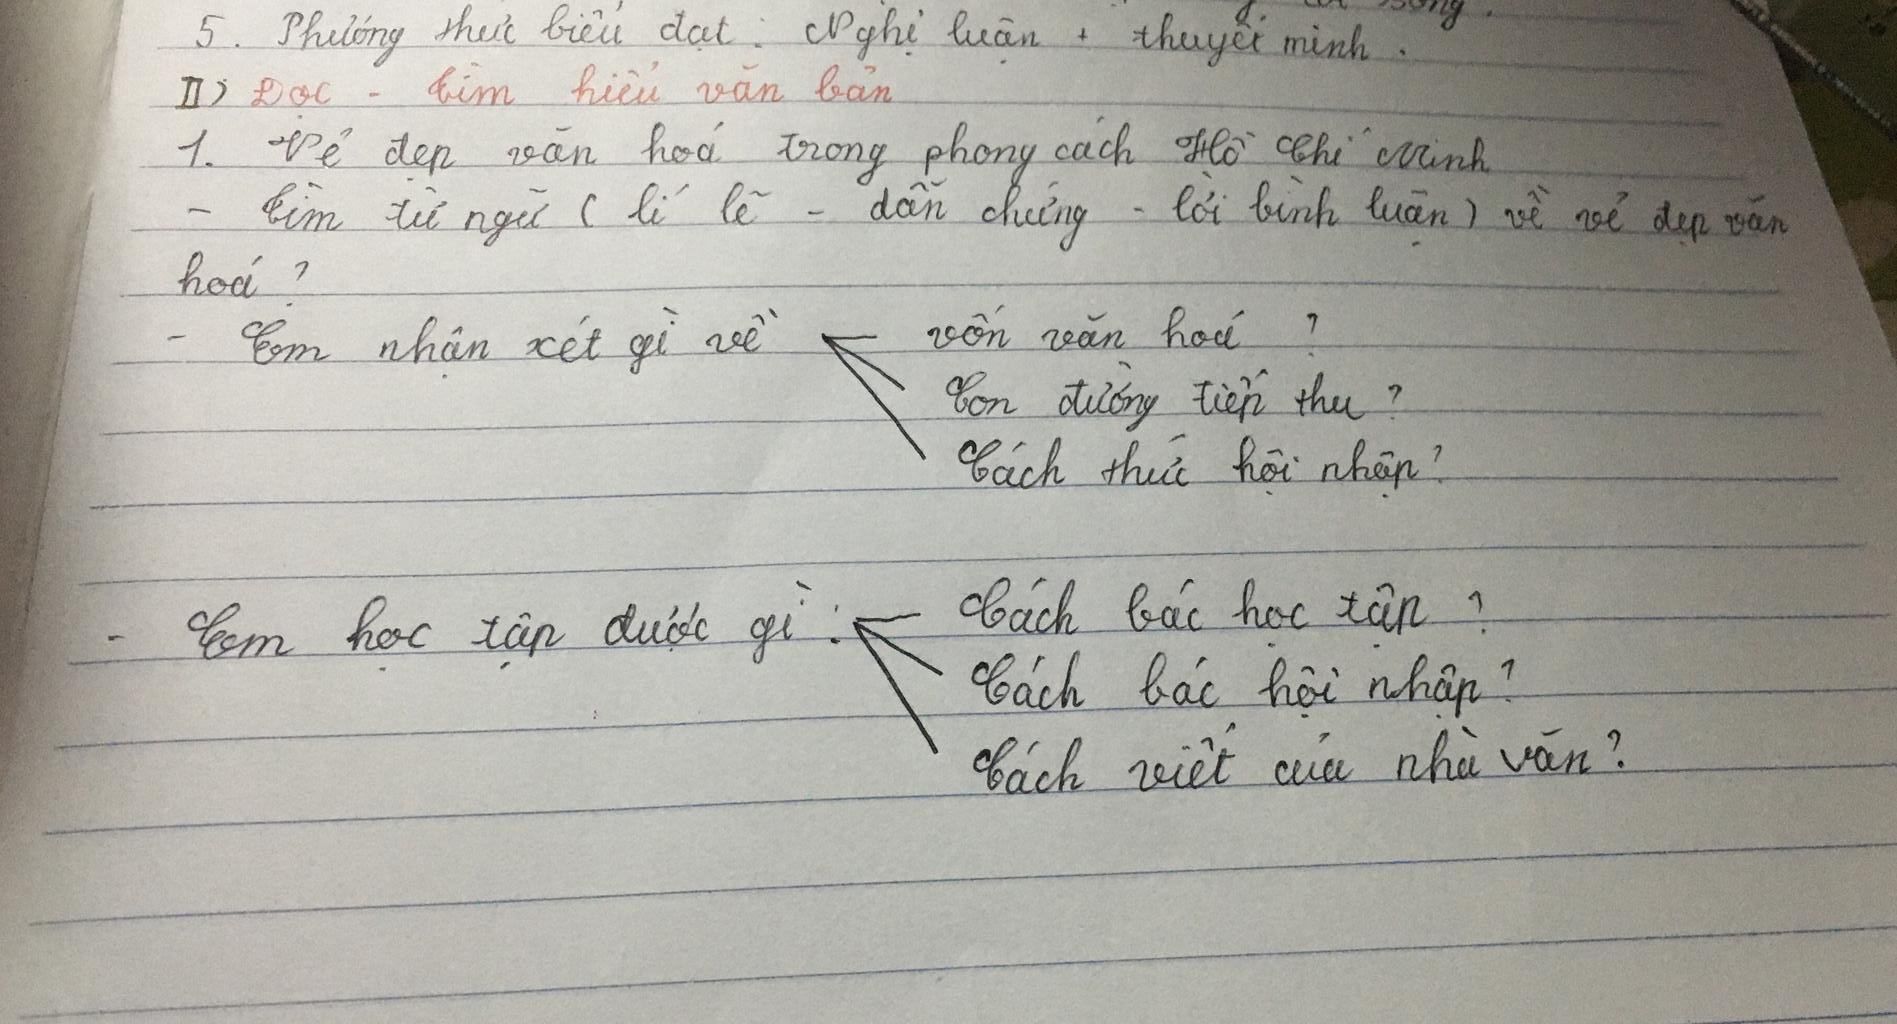 sống.
5. Phương thức biểu đạt: Nghị luận + thuyết minh.
II) Đọc - tìm hiểu văn bản
1. Vẻ đẹp văn hoá trong phong cách Hồ Chí Minh
- Tìm từ ngữ ( lí lẽ - dẫn chứng - lời bình luận) về vẻ đẹp văn
hoá ?
- Em nhận xét gì về
vốn văn hoá ?
Con đường tiếp thu ?
Cách thức hội nhập ?
- Em học tập được gì :
Cách bác học tập ?
Cách bác hội nhập ?
Cách viết của nhà văn ?